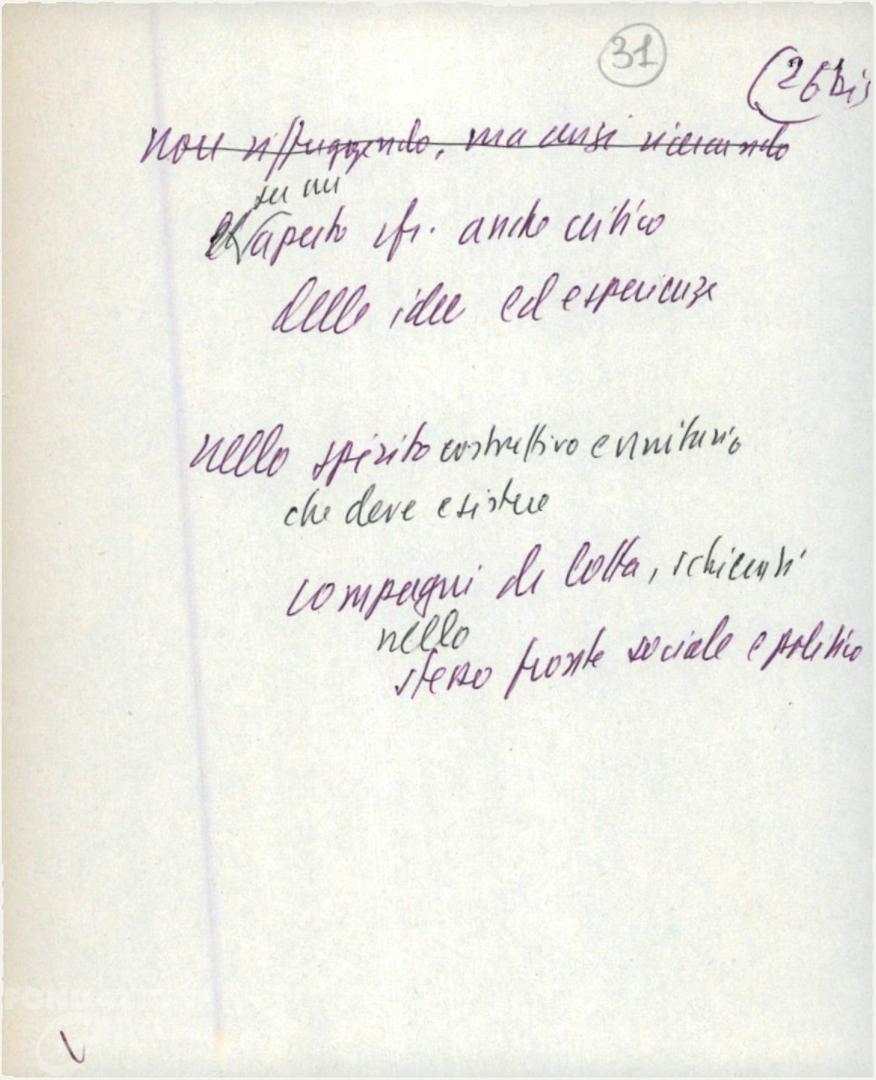 31
(26 bis
non rifuggendo, ma anzi ricercando
su un
aperto cfr. anche critico
delle idee ed esperienze
nello spirito costruttivo e unitario
che deve esistere
compagni di lotta, schierati
nello
stesso fronte sociale e politico